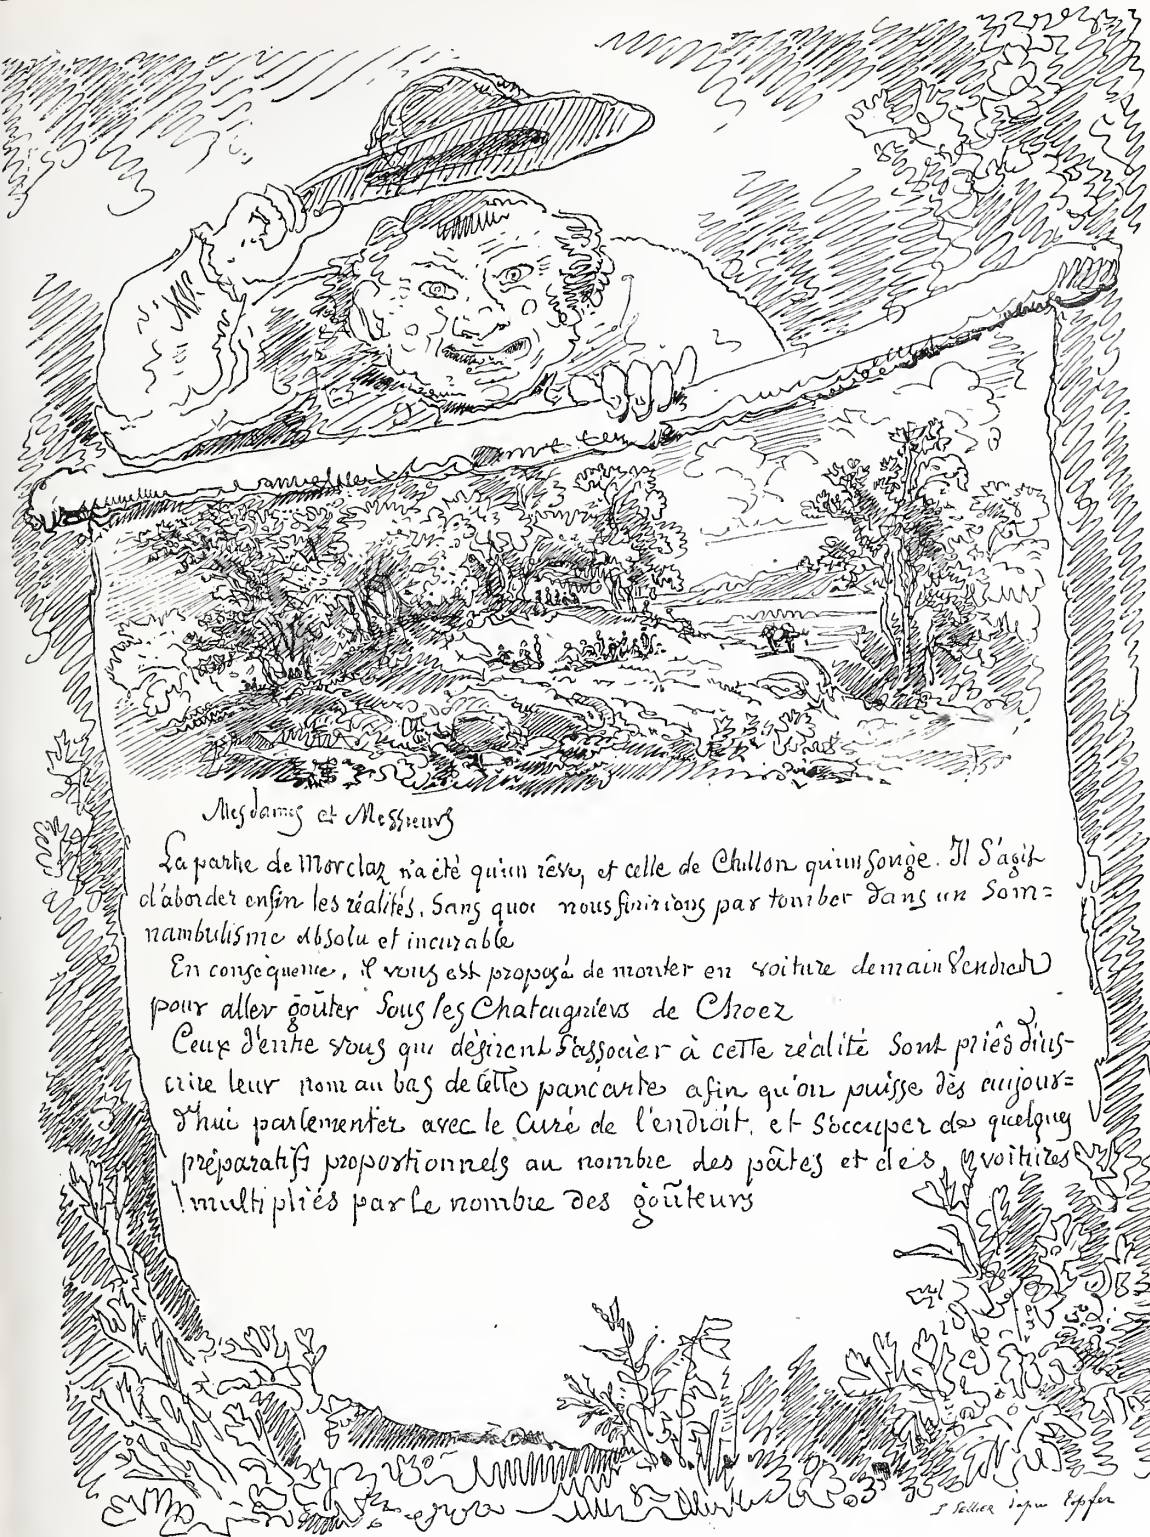 Mesdames et Messieurs
La partie de Morclaz n'a été qu'un rêve, et celle de Chillon qu'un songe. Il S'agit
d'aborder enfin les réalités, Sans quoi nous finirions par tomber dans un Som=
nambulisme absolu et incurable
En conséquence, il vous est proposé de monter en voiture demain Vendredi
pour aller goûter Sous les Chataigniers de Choez
Ceux d'entre vous qui désirent S'associer à cette réalité Sont priés d'ins-
crire leur nom au bas de cette pancarte afin qu'on puisse dès aujour=
d'hui parlementer avec le Curé de l'endroit, et S'occuper de quelques
préparatifs proportionnels au nombre des pâtés et des voitures
multipliés par le nombre des goûteurs
J Sellier d'après Töpfer